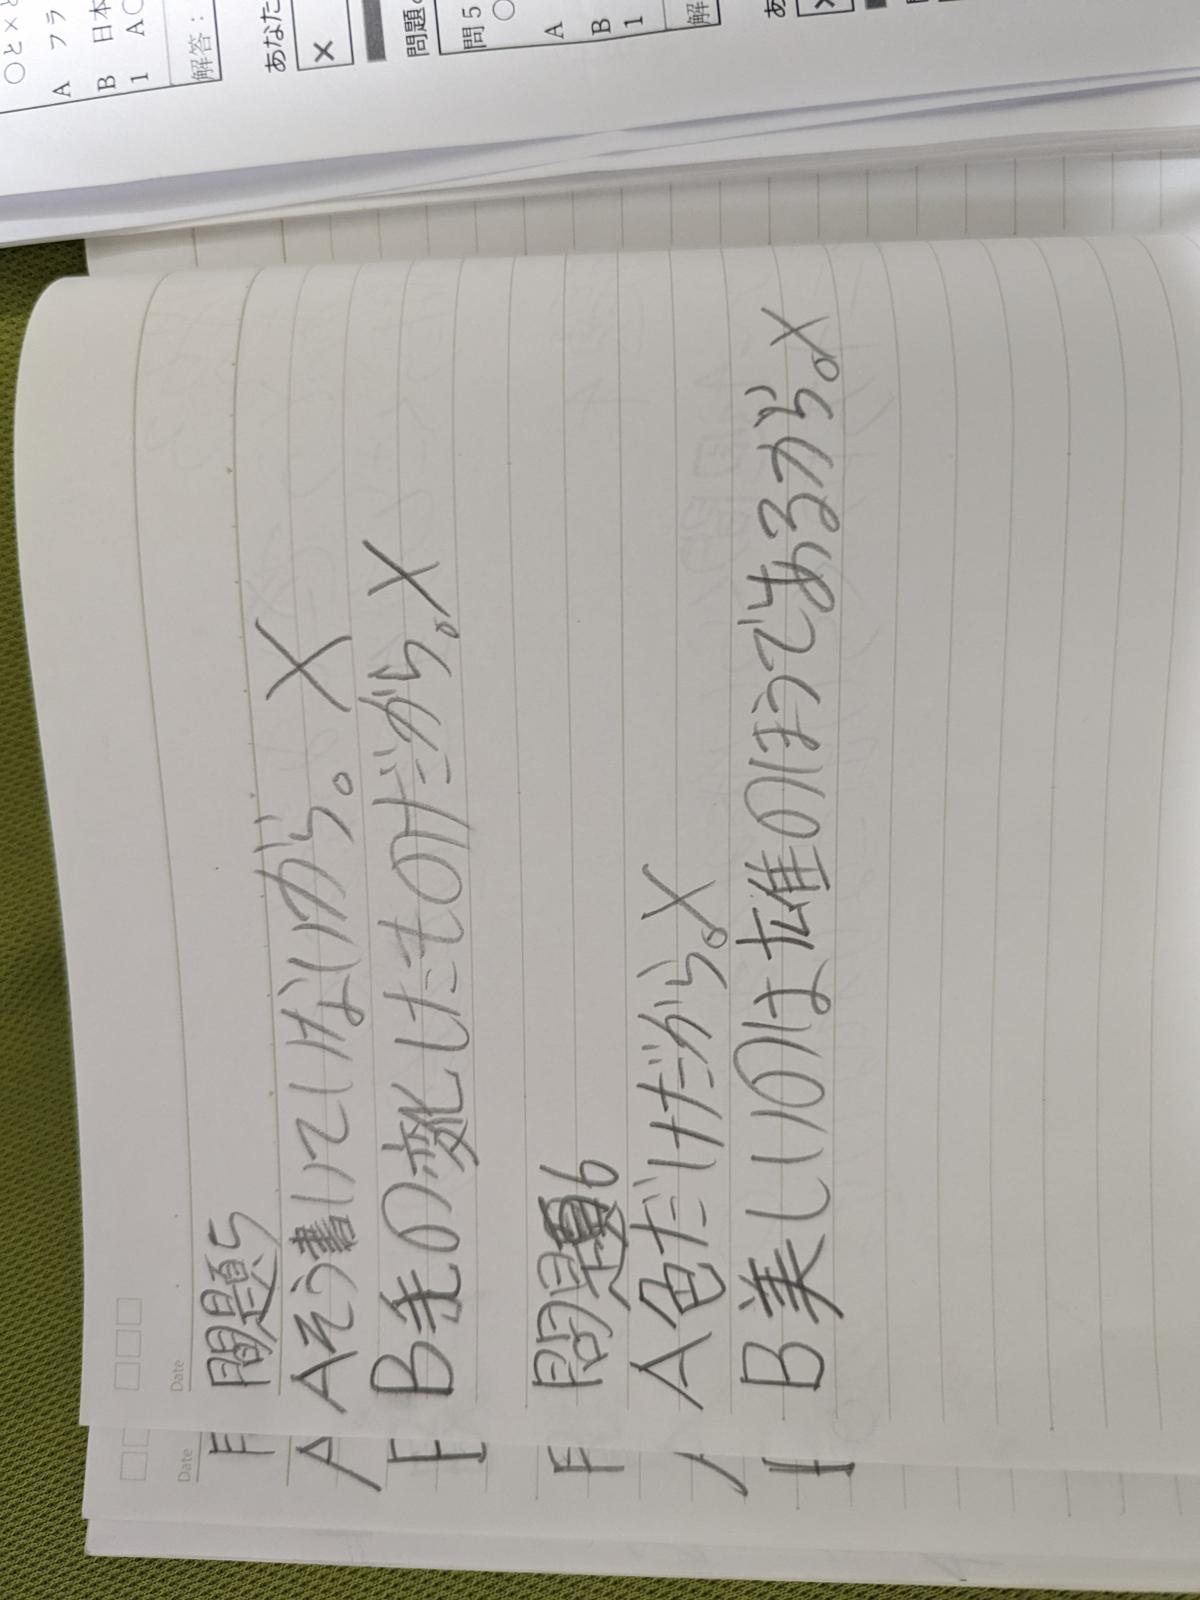 ○と×と
A フラ
B 日本
1 A○
解答：
あなた
×
問題
問5
○
A
B
1
解
あ
×
Date
問題5
Aそう書いていけないから。×
B毛の変化したものだから。×
問題6
A色だけだから。×
B美しいのは雄のほうであるから。×
Date
A
A